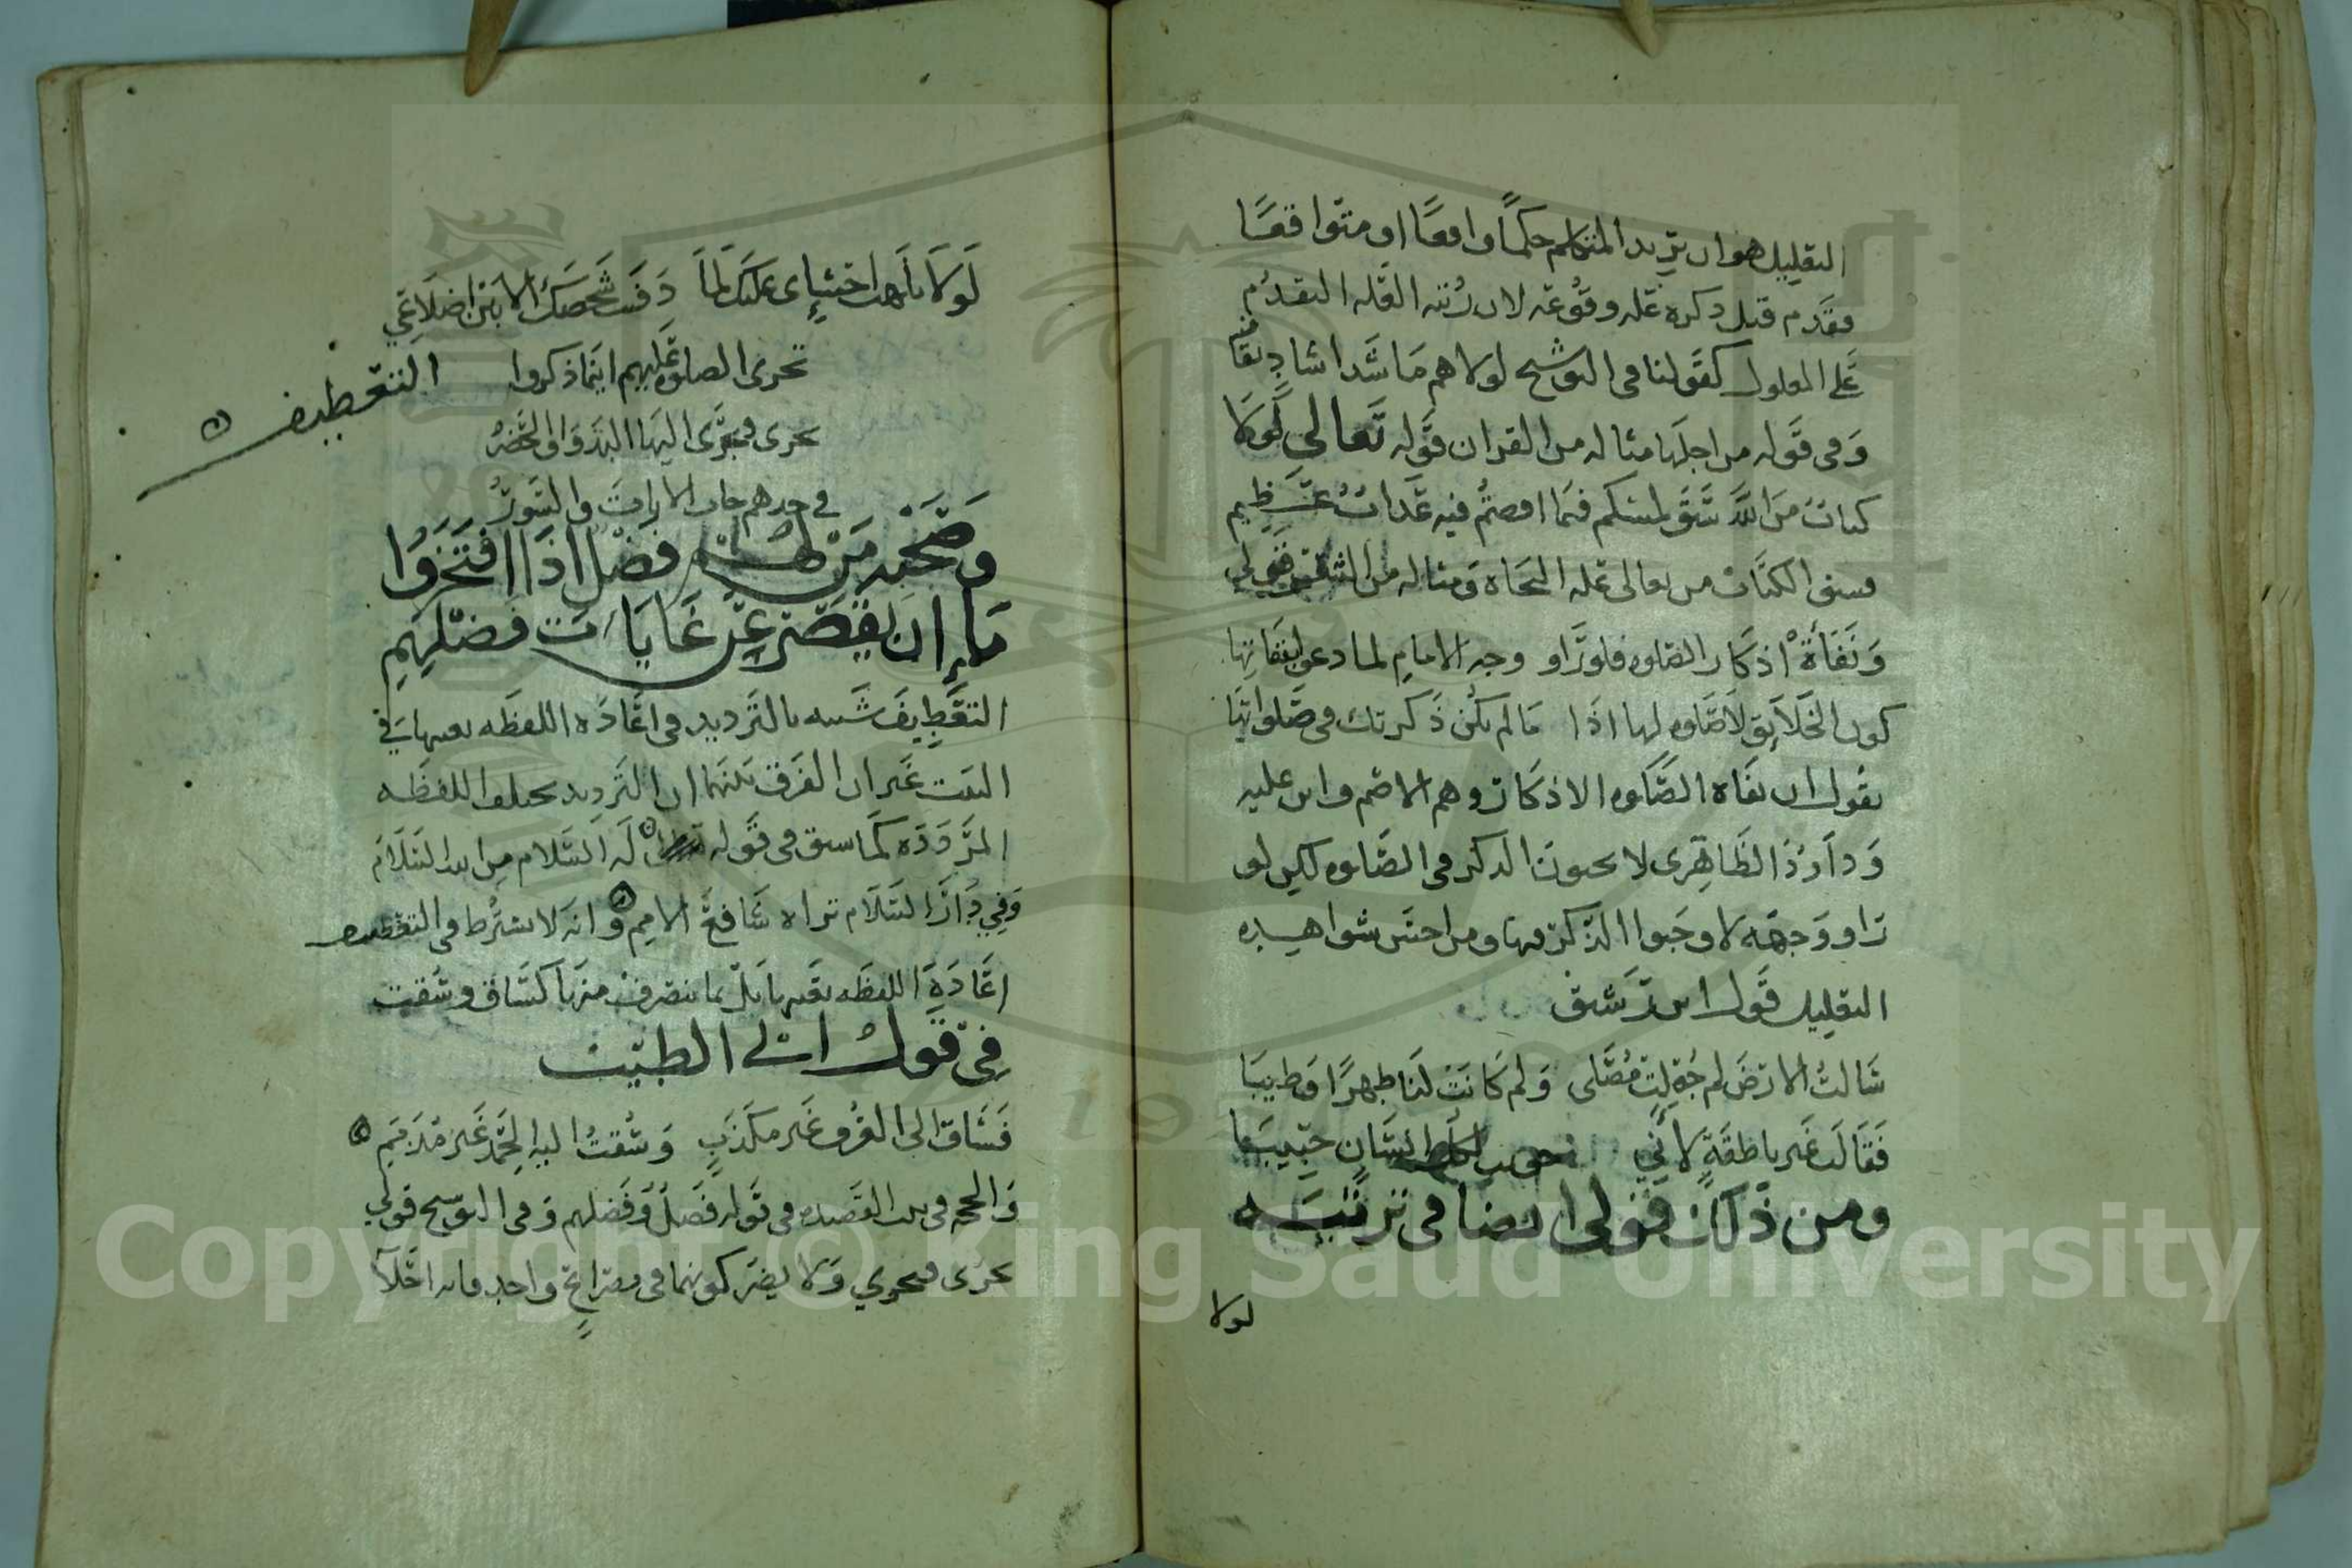 التعليل هو ان يريد المتكلم حكمًا واقعًا او متوقعًا
فقدم قبل ذكره عله وقوعه لان رتبه العله التقدم
على المعلول كقولنا فى التوشيح لولاهم ما شدا شادٍ
وفى قوله من اجلها مثاله من القران قوله تعالى لولا
كتاب من الله سبق لمسكم فيما افضتم فيه عذاب عظيم
فسبق الكتاب من تعالى عله النجاة ومثاله من قولى
ونفاة اذكار الصلوه فلو راو وجه الامام لما دعو بنفاتها
كون الخلايق لا صلوه لها اذا ما لم يكن ذكر تك فى صلواتها
يقول ان نفاة الصلوه الاذكار وهم الاصم وابن عليه
وداود الظاهرى لا يحبون الذكر فى الصلوه لكن لو
راو وجهه لاوجبوا الذكر فيها ومن احسن شواهده
التعليل قول ابن رشيق
سالت الارض لم جعلت مصلى ولم كانت لنا طهرًا وطيبا
فقالت غير ناطقةٍ لانى حويت لكل انسان حبيبا
ومن ذلك قولى ايضا فى
لولا
لولا احشاى عليك لما شخصك الا بين اضلاعي
تجرى الصلوه عليهم اينما ذكروا
التعطيف
تجرى مجرى اليها البدو والحضر
فى الايات والسور
وصحبه من لهم فضل اذا افتخروا
ما ان يقصر عن غايات فضلهم
التعطيف شبيه بالترديد فى اعادة اللفظه بعينها فى
البيت غير ان الفرق بينهما ان الترديد اللفظه
المردوده كما سبق فى قوله له السلام من الله السلام
وفي دار السلام تراه شافع الامم وانه لا يشترط فى التعطيف
اعادة اللفظه بعينها بل بما يتصرف منها كساق وسقت
فى قول ابي الطيب
فساق الى العرف غير مكذبٍ وسقت اليه الحمد غير مذمم
فى بيت القصيده فى قوله فضل وفضلهم وفى التوشيح قولي
تجرى مجرى ولا يضر كونهما فى مصراعٍ واحد